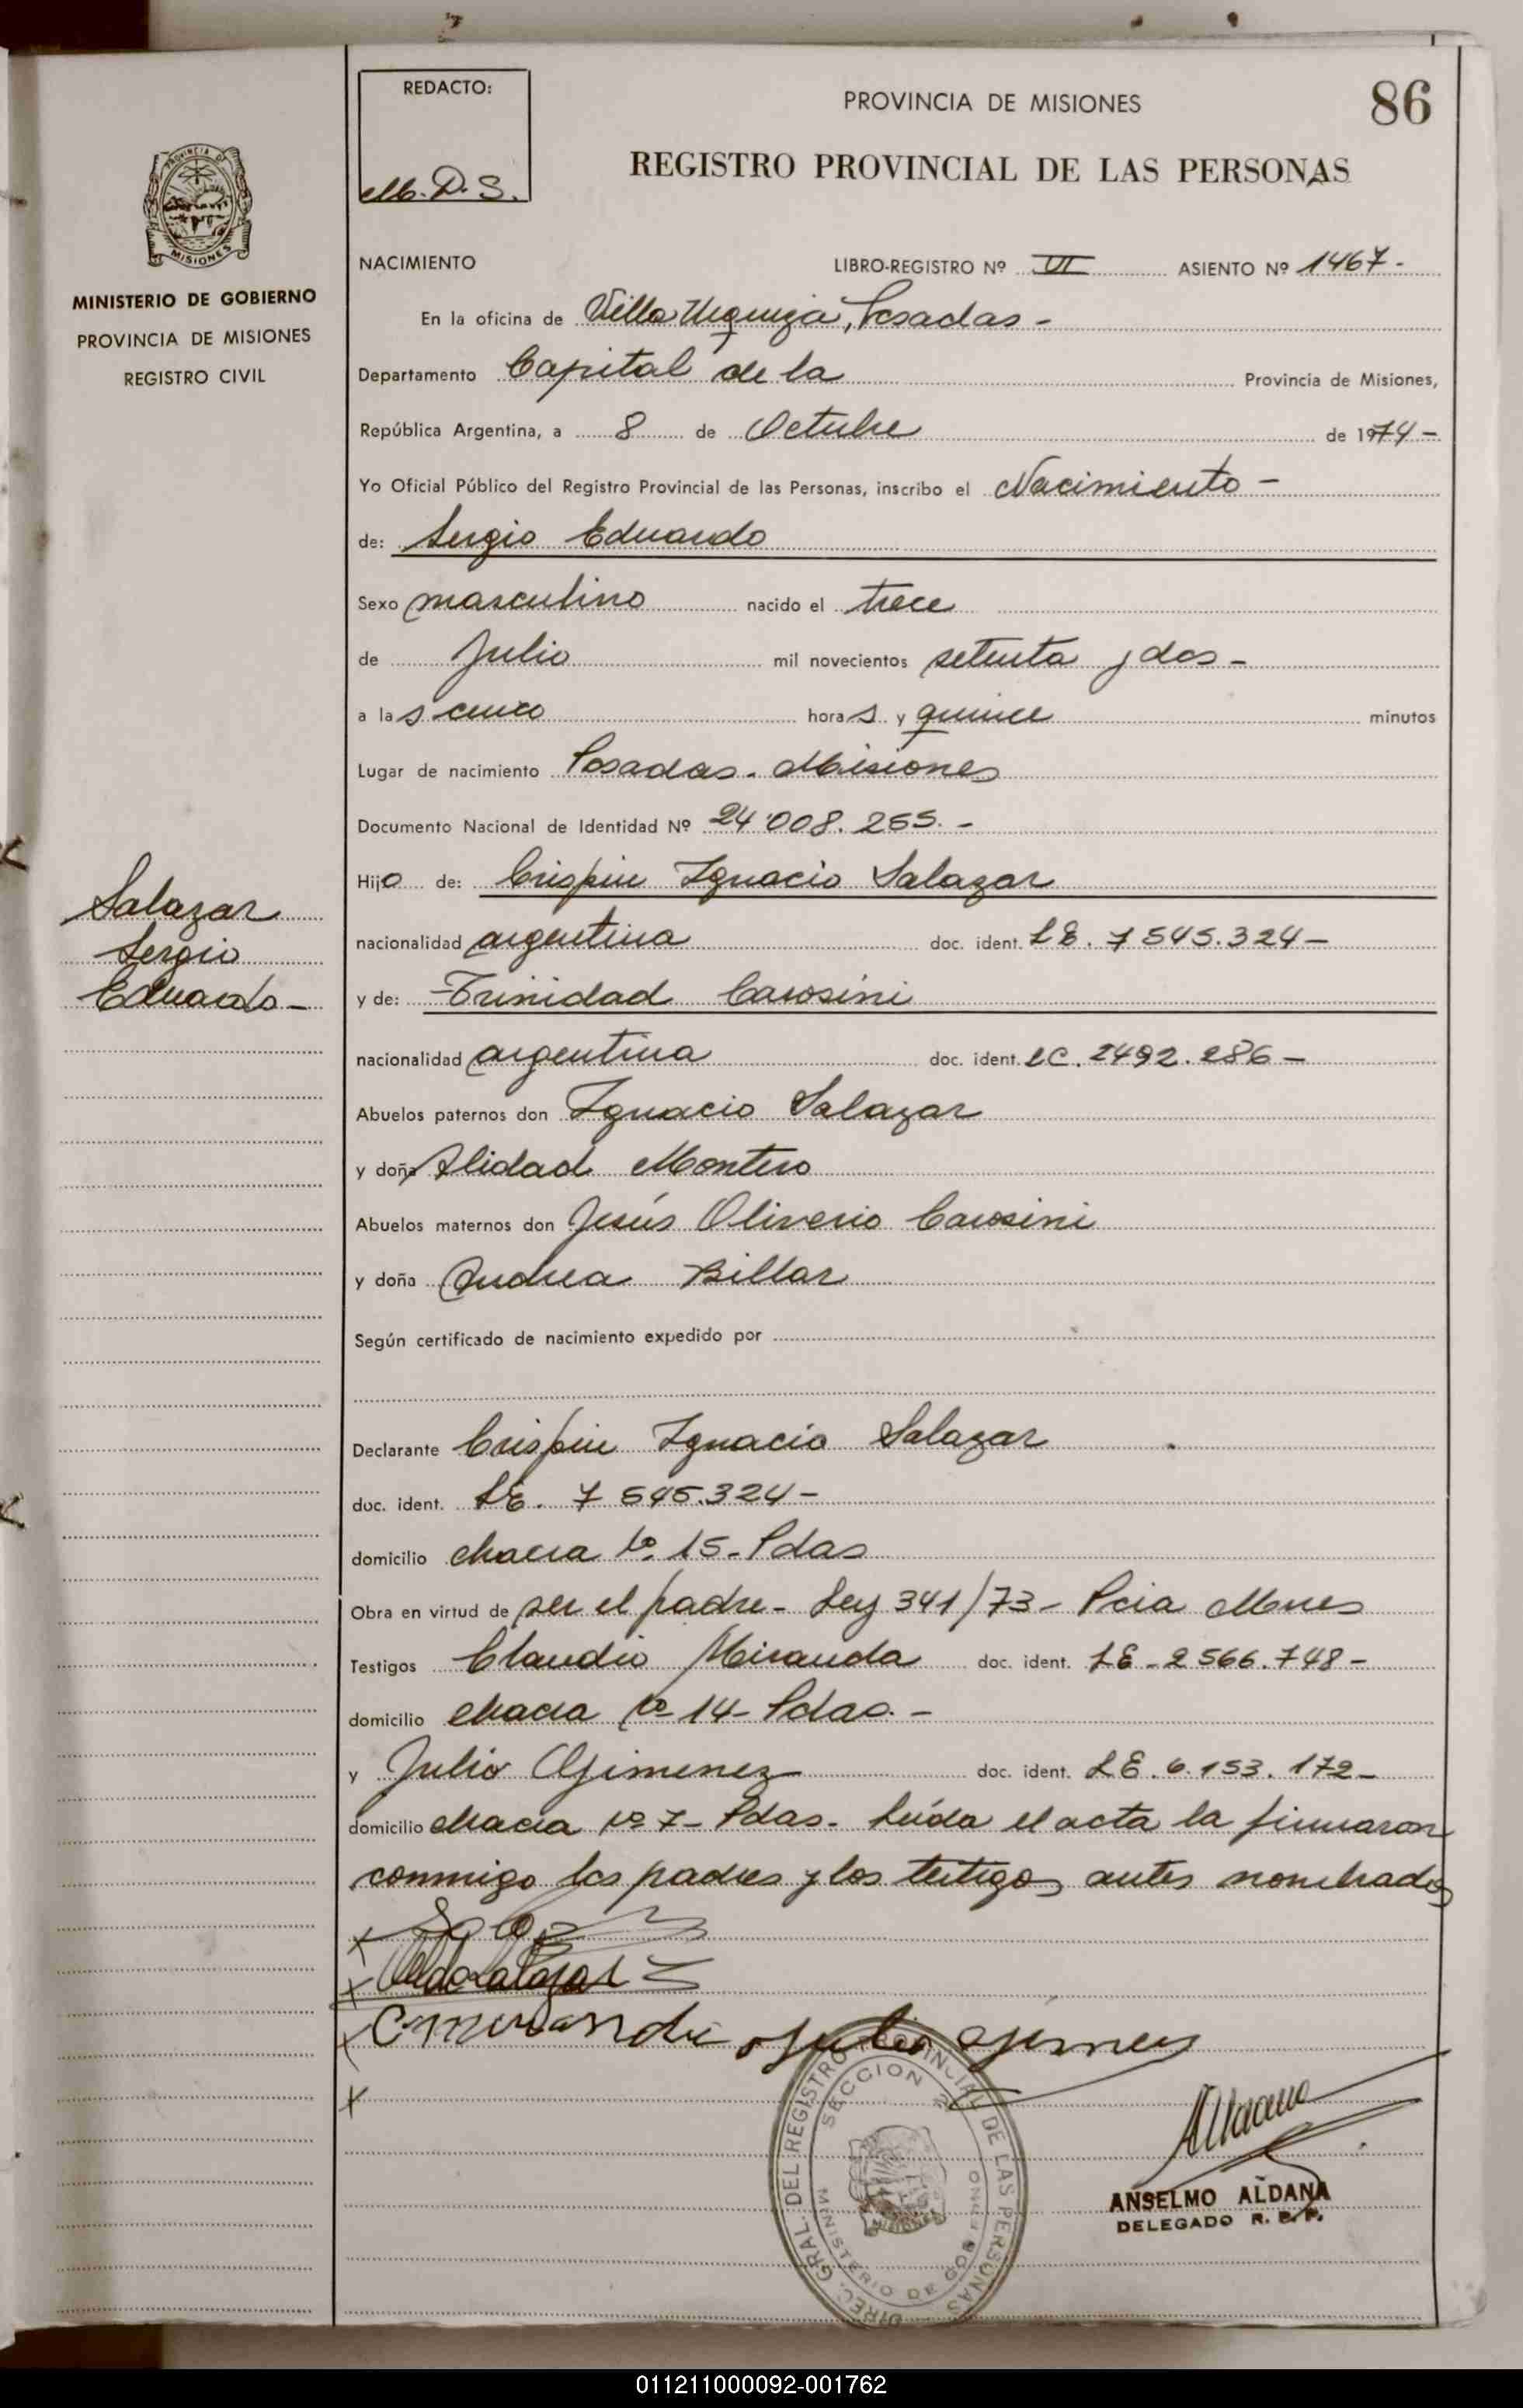 REDACTO:
M. D. S.
PROVINCIA DE MISIONES
86
REGISTRO PROVINCIAL DE LAS PERSONAS
MISIONES
MINISTERIO DE GOBIERNO
PROVINCIA DE MISIONES
REGISTRO CIVIL
NACIMIENTO LIBRO-REGISTRO Nº VI ASIENTO Nº 1467-
En la oficina de Villa Urquiza, Posadas-
Departamento Capital de la Provincia de Misiones,
República Argentina, a 8 de Octubre de 1974-
Yo Oficial Público del Registro Provincial de las Personas, inscribo el Nacimiento-
de: Sergio Eduardo
Sexo masculino nacido el trece
de Julio mil novecientos setenta y dos-
a las cinco horas y quince minutos
Lugar de nacimiento Posadas. Misiones
Documento Nacional de Identidad Nº 24.008.255.-
Hijo de: Crispin Ignacio Salazar
Salazar
Sergio
Eduardo-
nacionalidad argentina doc. ident. LE. 7545.324-
y de: Trinidad Carosini
nacionalidad argentina doc. ident. LC. 2492.286-
Abuelos paternos don Ignacio Salazar
y doña Montero
Abuelos maternos don Jesús Oliverio Carosini
y doña Andrea Billar
Según certificado de nacimiento expedido por
Declarante Crispin Ignacio Salazar
doc. ident. LE. 7545.324-
domicilio chacra Nº 15-Pdas
Obra en virtud de ser el padre- Ley 341/73- Pcia Mnes
Testigos Claudio Miranda doc. ident. LE-2566.748-
domicilio chacra Nº 14-Pdas.-
y Julio Gimenez doc. ident. LE.6.153.172-
domicilio chacra Nº 7-Pdas. Leída el acta la firmaron
conmigo los padres y los testigos antes nombrados
x
x
x
x
DIREC. GRAL. DEL REGISTRO PROVINCIAL DE LAS PERSONAS
SECCION 2
MINISTERIO DE GOBIERNO
MISIONES
ANSELMO ALDANA
DELEGADO R. P. P.
011211000092-001762